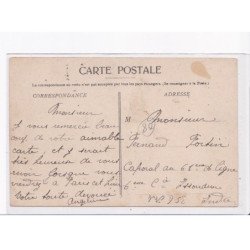 CARTE POSTALE
La correspondance au recto n'est pas acceptée par tous les pays étrangers. (Se renseigner à la Poste.)
CORRESPONDANCE
ADRESSE
Monsieur
je vous remercie beau
coup de votre aimable
carte, et je serait
très heureuse de vous
voir lorsque vous
viendrez à Paris et
Votre toute dévouée
Angèle
M Monsieur
Fernand
Caporal au 68e de ligne
6em Cie Issoudun
Indre